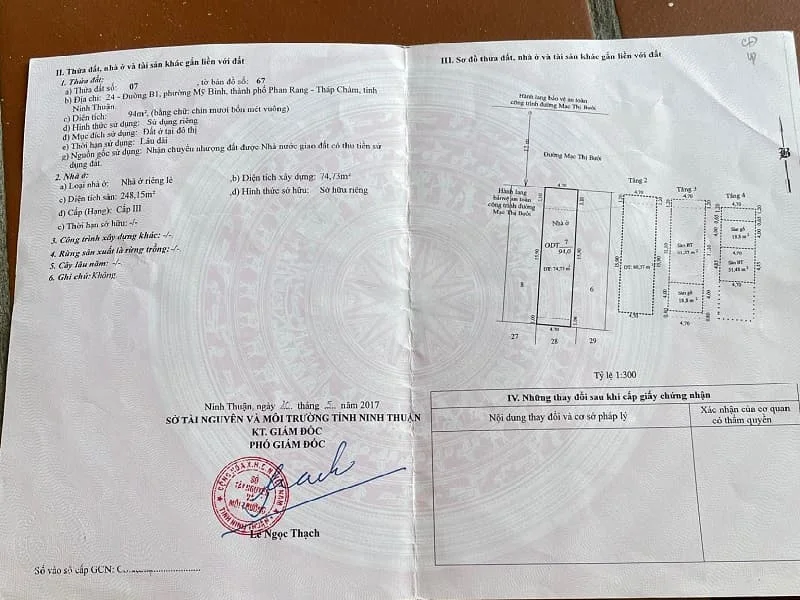 II. Thửa đất, nhà ở và tài sản khác gắn liền với đất
1. Thửa đất:
a) Thửa đất số: 07 , tờ bản đồ số: 67
b) Địa chỉ: 24 - Đường B1, phường Mỹ Bình, thành phố Phan Rang - Tháp Chàm, tỉnh
Ninh Thuận.
c) Diện tích: 94m², (bằng chữ: chín mươi bốn mét vuông)
d) Hình thức sử dụng: Sử dụng riêng
đ) Mục đích sử dụng: Đất ở tại đô thị
e) Thời hạn sử dụng: Lâu dài
g) Nguồn gốc sử dụng: Nhận chuyển nhượng đất được Nhà nước giao đất có thu tiền sử
dụng đất.
2. Nhà ở:
a) Loại nhà ở: Nhà ở riêng lẻ ,b) Diện tích xây dựng: 74,73m²
c) Diện tích sàn: 248,15m² ,d) Hình thức sở hữu: Sở hữu riêng
đ) Cấp (Hạng): Cấp III
e) Thời hạn sở hữu: -/-
3. Công trình xây dựng khác: -/-
4. Rừng sản xuất là rừng trồng: -/-
5. Cây lâu năm: -/-
6. Ghi chú: Không.
Ninh Thuận, ngày tháng 5 năm 2017
SỞ TÀI NGUYÊN VÀ MÔI TRƯỜNG TỈNH NINH THUẬN
KT. GIÁM ĐỐC
PHÓ GIÁM ĐỐC
SỞ
TÀI NGUYÊN
VÀ
MÔI TRƯỜNG
TỈNH NINH THUẬN
Lê Ngọc Thạch
Số vào sổ cấp GCN:
III. Sơ đồ thửa đất, nhà ở và tài sản khác gắn liền với đất
Hành lang bảo vệ an toàn
công trình đường Mạc Thị Bưởi
Đường Mạc Thị Bưởi
B
Hành lang
bảo vệ an toàn
công trình đường
Mạc Thị Bưởi
4.70
Nhà ở
ODT 7
94,0
DT: 74,73 m²
15,90
15,90
8
6
4.70
27
28
29
Tầng 2
4,70
Tầng 3
4,70
Sàn BT
Sàn gỗ
18,8 m²
4,70
Tầng 4
4,70
Sàn gỗ
18,8 m²
Sàn BT
31,48 m²
Tỷ lệ 1:300
IV. Những thay đổi sau khi cấp giấy chứng nhận
Nội dung thay đổi và cơ sở pháp lý
Xác nhận của cơ quan
có thẩm quyền